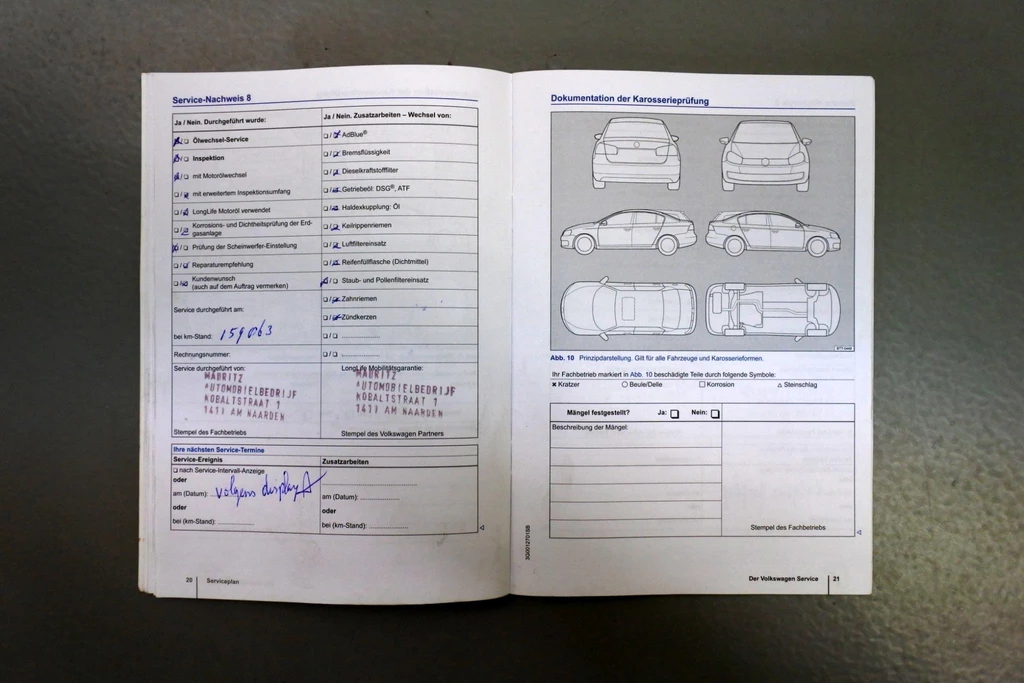 Service-Nachweis 8
Ja / Nein. Durchgeführt wurde:
Ölwechsel-Service
Inspektion
mit Motorölwechsel
mit erweitertem Inspektionsumfang
LongLife Motoröl verwendet
Korrosions- und Dichtheitsprüfung der Erd-
gasanlage
Prüfung der Scheinwerfer-Einstellung
Reparaturempfehlung
Kundenwunsch
(auch auf dem Auftrag vermerken)
Service durchgeführt am:
bei km-Stand: 159063
Rechnungsnummer:
Service durchgeführt von:
MAURITZ
AUTOMOBIELBEDRIJF
KOBALTSTRAAT 1
1411 AM NAARDEN
Stempel des Fachbetriebs
Ja / Nein. Zusatzarbeiten – Wechsel von:
AdBlue®
Bremsflüssigkeit
Dieselkraftstofffilter
Getriebeöl: DSG®, ATF
Haldexkupplung: Öl
Keilrippenriemen
Luftfiltereinsatz
Reifenfüllflasche (Dichtmittel)
Staub- und Pollenfiltereinsatz
Zahnriemen
Zündkerzen
LongLife Mobilitätsgarantie:
MAURITZ
AUTOMOBIELBEDRIJF
KOBALTSTRAAT 1
1411 AM NAARDEN
Stempel des Volkswagen Partners
Ihre nächsten Service-Termine
Service-Ereignis
nach Service-Intervall-Anzeige
oder
am (Datum): volgens display
oder
bei (km-Stand):
Zusatzarbeiten
am (Datum):
oder
bei (km-Stand):
20 Serviceplan
Dokumentation der Karosserieprüfung
Abb. 10 Prinzipdarstellung. Gilt für alle Fahrzeuge und Karosserieformen.
Ihr Fachbetrieb markiert in Abb. 10 beschädigte Teile durch folgende Symbole:
Kratzer Beule/Delle Korrosion Steinschlag
Mängel festgestellt? Ja: Nein:
Beschreibung der Mängel:
Stempel des Fachbetriebs
Der Volkswagen Service 21